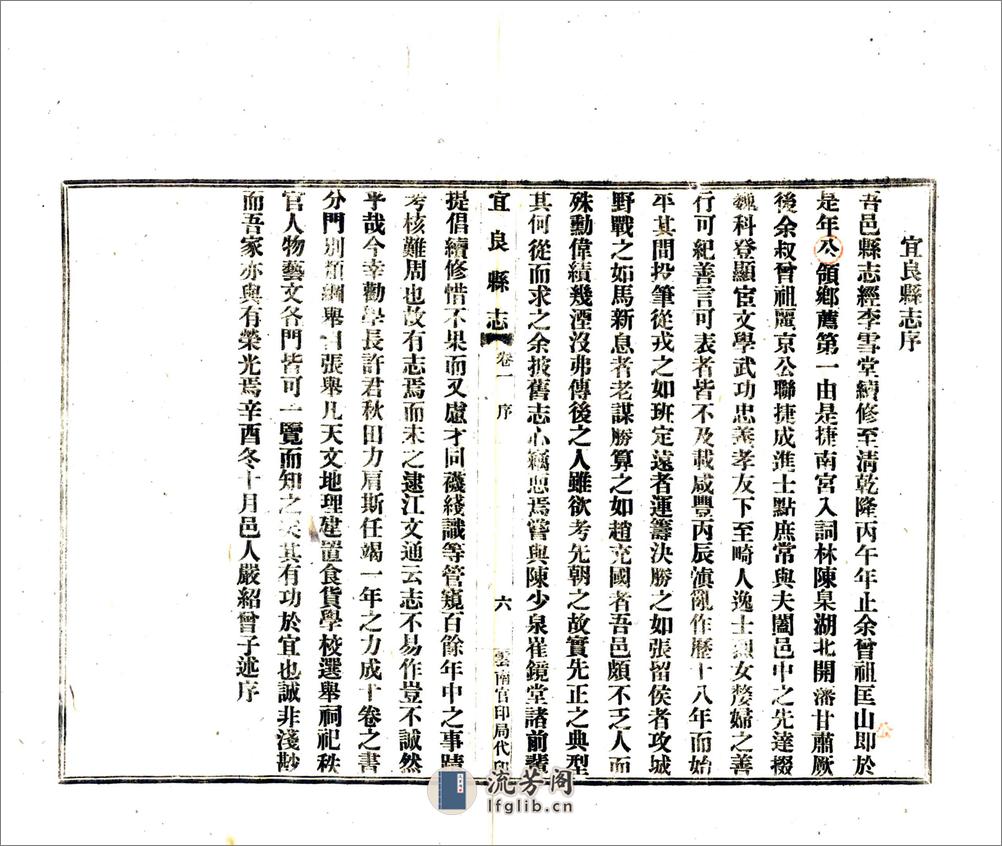 宜良縣志序
吾邑縣志經李雪堂續修至清乾隆丙午年止余曾祖匡山即於
是年公領鄉薦第一由是捷南宮入詞林陳臬湖北開藩甘肅厥
後余叔曾祖麗京公聯捷成進士點庶常與夫闔邑中之先達掇
巍科登顯宦文學武功忠義孝友下至畸人逸士烈女嫠婦之善
行可紀善言可表者皆不及載咸豐丙辰滇亂作歷十八年而始
平其間投筆從戎之如班定遠者運籌決勝之如張留侯者攻城
野戰之如馬新息者老謀勝算之如趙充國者吾邑頗不乏人而
殊勳偉績幾湮沒弗傳後之人雖欲考先朝之故實先正之典型
其何從而求之余披舊志心竊悲焉嘗與陳少泉崔鏡堂諸前輩
宜良縣志 卷一 序 六 雲南官印局代印
提倡續修惜不果而又慮才同襪綫識等管窺百餘年中之事蹟
考核難周也故有志焉而未之逮江文通云志不易作豈不誠然
乎哉今幸勸學長許君秋田力肩斯任竭一年之力成十卷之書
分門別類綱舉目張舉凡天文地理建置食貨學校選舉祠祀秩
官人物藝文各門皆可一覽而知之矣其有功於宜也誠非淺尠
而吾家亦與有榮光焉辛酉冬十月邑人嚴紹曾子述序
公
流芳阁
lfglib.cn